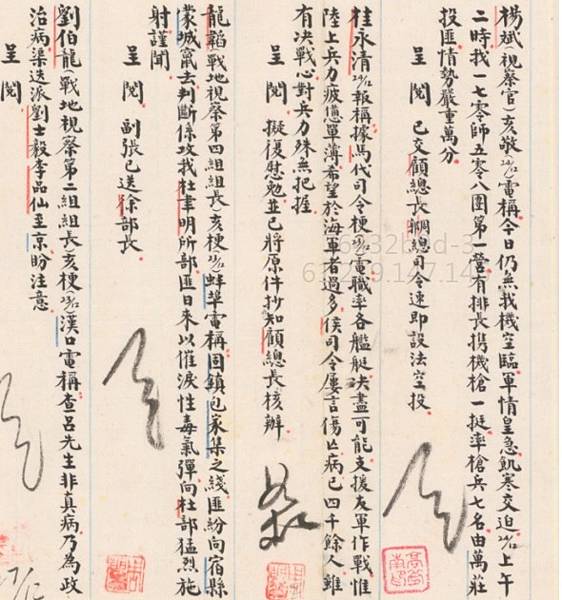 楊斌(視察官)亥敬(24/12)電稱今日仍無我機空臨軍情皇急飢寒交迫24/12上午
二時找一七零師五零八團第一營有排長携機槍一挺率槍兵七名由萬莊
投匪情勢嚴重萬分
呈閱 已交顧總長總司令速即設法空投
桂永清24/12報稱據馬代司令梗23/12電職率各艦艇決盡可能支援友軍作戰惟
陸上兵力疲憊單薄希望於海軍者過多侯司令屢言傷亡病已四千餘人雖
有决戰心對兵力殊無把握
呈閱 擬復慰勉並已將原件抄知顧總長核辦
龍韜(戰地視察第四組組長)亥梗23/12蚌埠電稱固鎮包家集之綫匪紛向宿縣
蒙城竄去判斷係攻我杜聿明所部匪日來以催淚性毒氣彈向杜部猛烈施
射謹聞
呈閱 副張已送徐部長
劉伯龍(戰地視察第二組組長)亥梗23/12漢口電稱查呂先生非真病乃為政
治病渠迭派劉士毅李品仙至京盼注意
呈閱